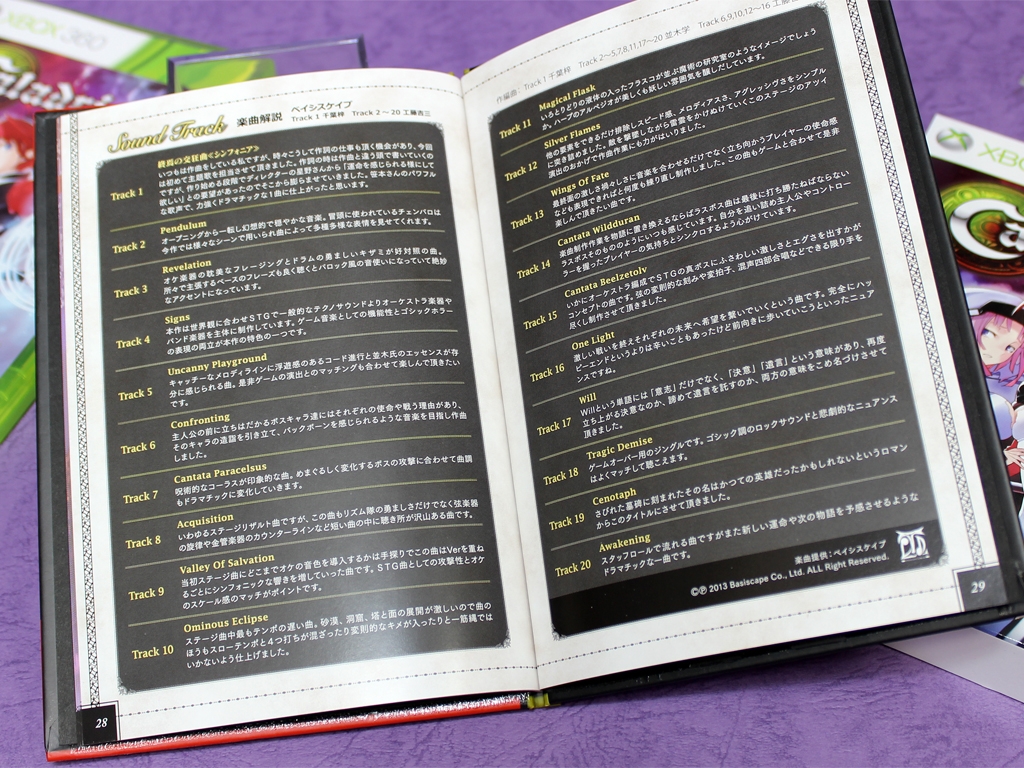 XBOX 360
Sound Track 楽曲解説
ベイシスケイプ
Track 1 千葉梓 Track 2〜20 工藤吉三
Track 1
終焉の交狂曲<シンフォニア>
いつもは作曲をしている私ですが、時々こうして作詞の仕事も頂く機会があり、今回
は初めて主題歌を担当させて頂きました。作詞の時は作曲と違う頭で書いていくの
ですが、作り始める段階でディレクターの星野さんから「運命を感じられる物にして
欲しい」との要望があったのでそこから膨らませていきました。笹本さんのパワフル
な歌声で、力強くドラマチックな1曲に仕上がったと思います。
Track 2
Pendulum
オープニングから一転し幻想的で穏やかな音楽。冒頭に使われているチェンバロは
今作では様々なシーンで用いられ曲によって多種多様な表情を見せてくれます。
Track 3
Revelation
オケ楽器の耽美なフレージングとドラムの勇ましいキザミが好対照の曲。
所々で主張するベースのフレーズも良く聴くとバロック風の音使いになっていて絶妙
なアクセントになっています。
Track 4
Signs
本作は世界観に合わせSTGで一般的なテクノサウンドよりオーケストラ楽器や
バンド楽器を主体に制作しています。ゲーム音楽としての機能性とゴシックホラー
の表現の両立が本作の特色の一つです。
Track 5
Uncanny Playground
キャッチーなメロディラインに浮遊感のあるコード進行と並木氏のエッセンスが存
分に感じられる曲。是非ゲームの演出とのマッチングも合わせて楽しんで頂きたい
です。
Track 6
Confronting
主人公の前に立ちはだかるボスキャラ達にはそれぞれの使命や戦う理由があり、
そのキャラの造詣を引き立て、バックボーンを感じられるような音楽を目指し作曲
しました。
Track 7
Cantata Paracelsus
呪術的なコーラスが印象的な曲。めまぐるしく変化するボスの攻撃に合わせて曲調
もドラマチックに変化していきます。
Track 8
Acquisition
いわゆるステージリザルト曲ですが、この曲もリズム隊の勇ましさだけでなく弦楽器
の旋律や金管楽器のカウンターラインなど短い曲の中に聴き所が沢山ある曲です。
Track 9
Valley Of Salvation
当初ステージ曲にどこまでオケの音色を導入するかは手探りでこの曲はVerを重ね
るごとにシンフォニックな響きを増していった曲です。STG曲としての攻撃性とオケ
のスケール感のマッチがポイントです。
Track 10
Ominous Eclipse
ステージ曲中最もテンポの遅い曲。砂漠、洞窟、塔と面の展開が激しいので曲の
ほうもスローテンポと4つ打ちが混ざったり変則的なキメが入ったりと一筋縄では
いかないよう仕上げました。
28
作編曲: Track 1 千葉梓 Track 2〜5,7,8,11,17〜20 並木学 Track 6,9,10,12〜16 工藤吉
Track 11
Magical Flask
いろとりどりの液体の入ったフラスコが並ぶ魔術の研究室のようなイメージでしょう
か。ハープのアルペジオが美しくも妖しい雰囲気を醸しだしています。
Track 12
Silver Flames
他の要素をできるだけ排除しスピード感、メロディアスさ、アグレッシヴさをシンプル
に突き詰めました。敵を撃墜しながら雷雲をかけぬけていくこのステージのアツイ
演出のおかげで作曲作業にも力がはいりました。
Track 13
Wings Of Fate
最終面の激しさ禍々しさに音楽を合わせるだけでなく立ち向かうプレイヤーの使命感
なども表現できればと何度も練り直し制作しました。この曲もゲームと合わせて是非
楽しんで頂きたい曲です。
Track 14
Cantata Wilduran
楽曲制作作業を物語に置き換えるならばラスボス曲は最後に打ち勝たねばならない
ラスボスそのもののようにいつも感じています。自分を追い詰め主人公やコントロー
ラーを握ったプレイヤーの気持ちとシンクロするよう心がけています。
Track 15
Cantata Beelzetolv
いかにオーケストラ編成でSTGの真ボスにふさわしい激しさとエグさを出すかが
コンセプトの曲です。弦の変則的な刻みや変拍子、混声四部合唱などできる限り手を
尽くし制作させて頂きました。
Track 16
One Light
激しい戦いを終えそれぞれの未来へ希望を繋いでいくという曲です。完全にハッ
ピーエンドというよりは辛いこともあったけど前向きに歩いていこうといったニュア
ンスですね。
Track 17
Will
Willという単語には「意志」だけでなく、「決意」「遺言」という意味があり、再度
立ち上がる決意なのか、諦めて遺言を託すのか、両方の意味をこめ名づけさせて
頂きました。
Track 18
Tragic Demise
ゲームオーバー用のジングルです。ゴシック調のロックサウンドと悲劇的なニュアンス
はよくマッチして聴こえます。
Track 19
Cenotaph
さびれた墓碑に刻まれたその名はかつての英雄だったかもしれないというロマン
からこのタイトルにさせて頂きました。
Track 20
Awakening
スタッフロールで流れる曲ですがまた新しい運命や次の物語を予感させるような
ドラマチックな一曲です。
楽曲提供:ベイシスケイプ
©℗ 2013 Basiscape Co., Ltd. ALL Right Reserved.
29
XBO